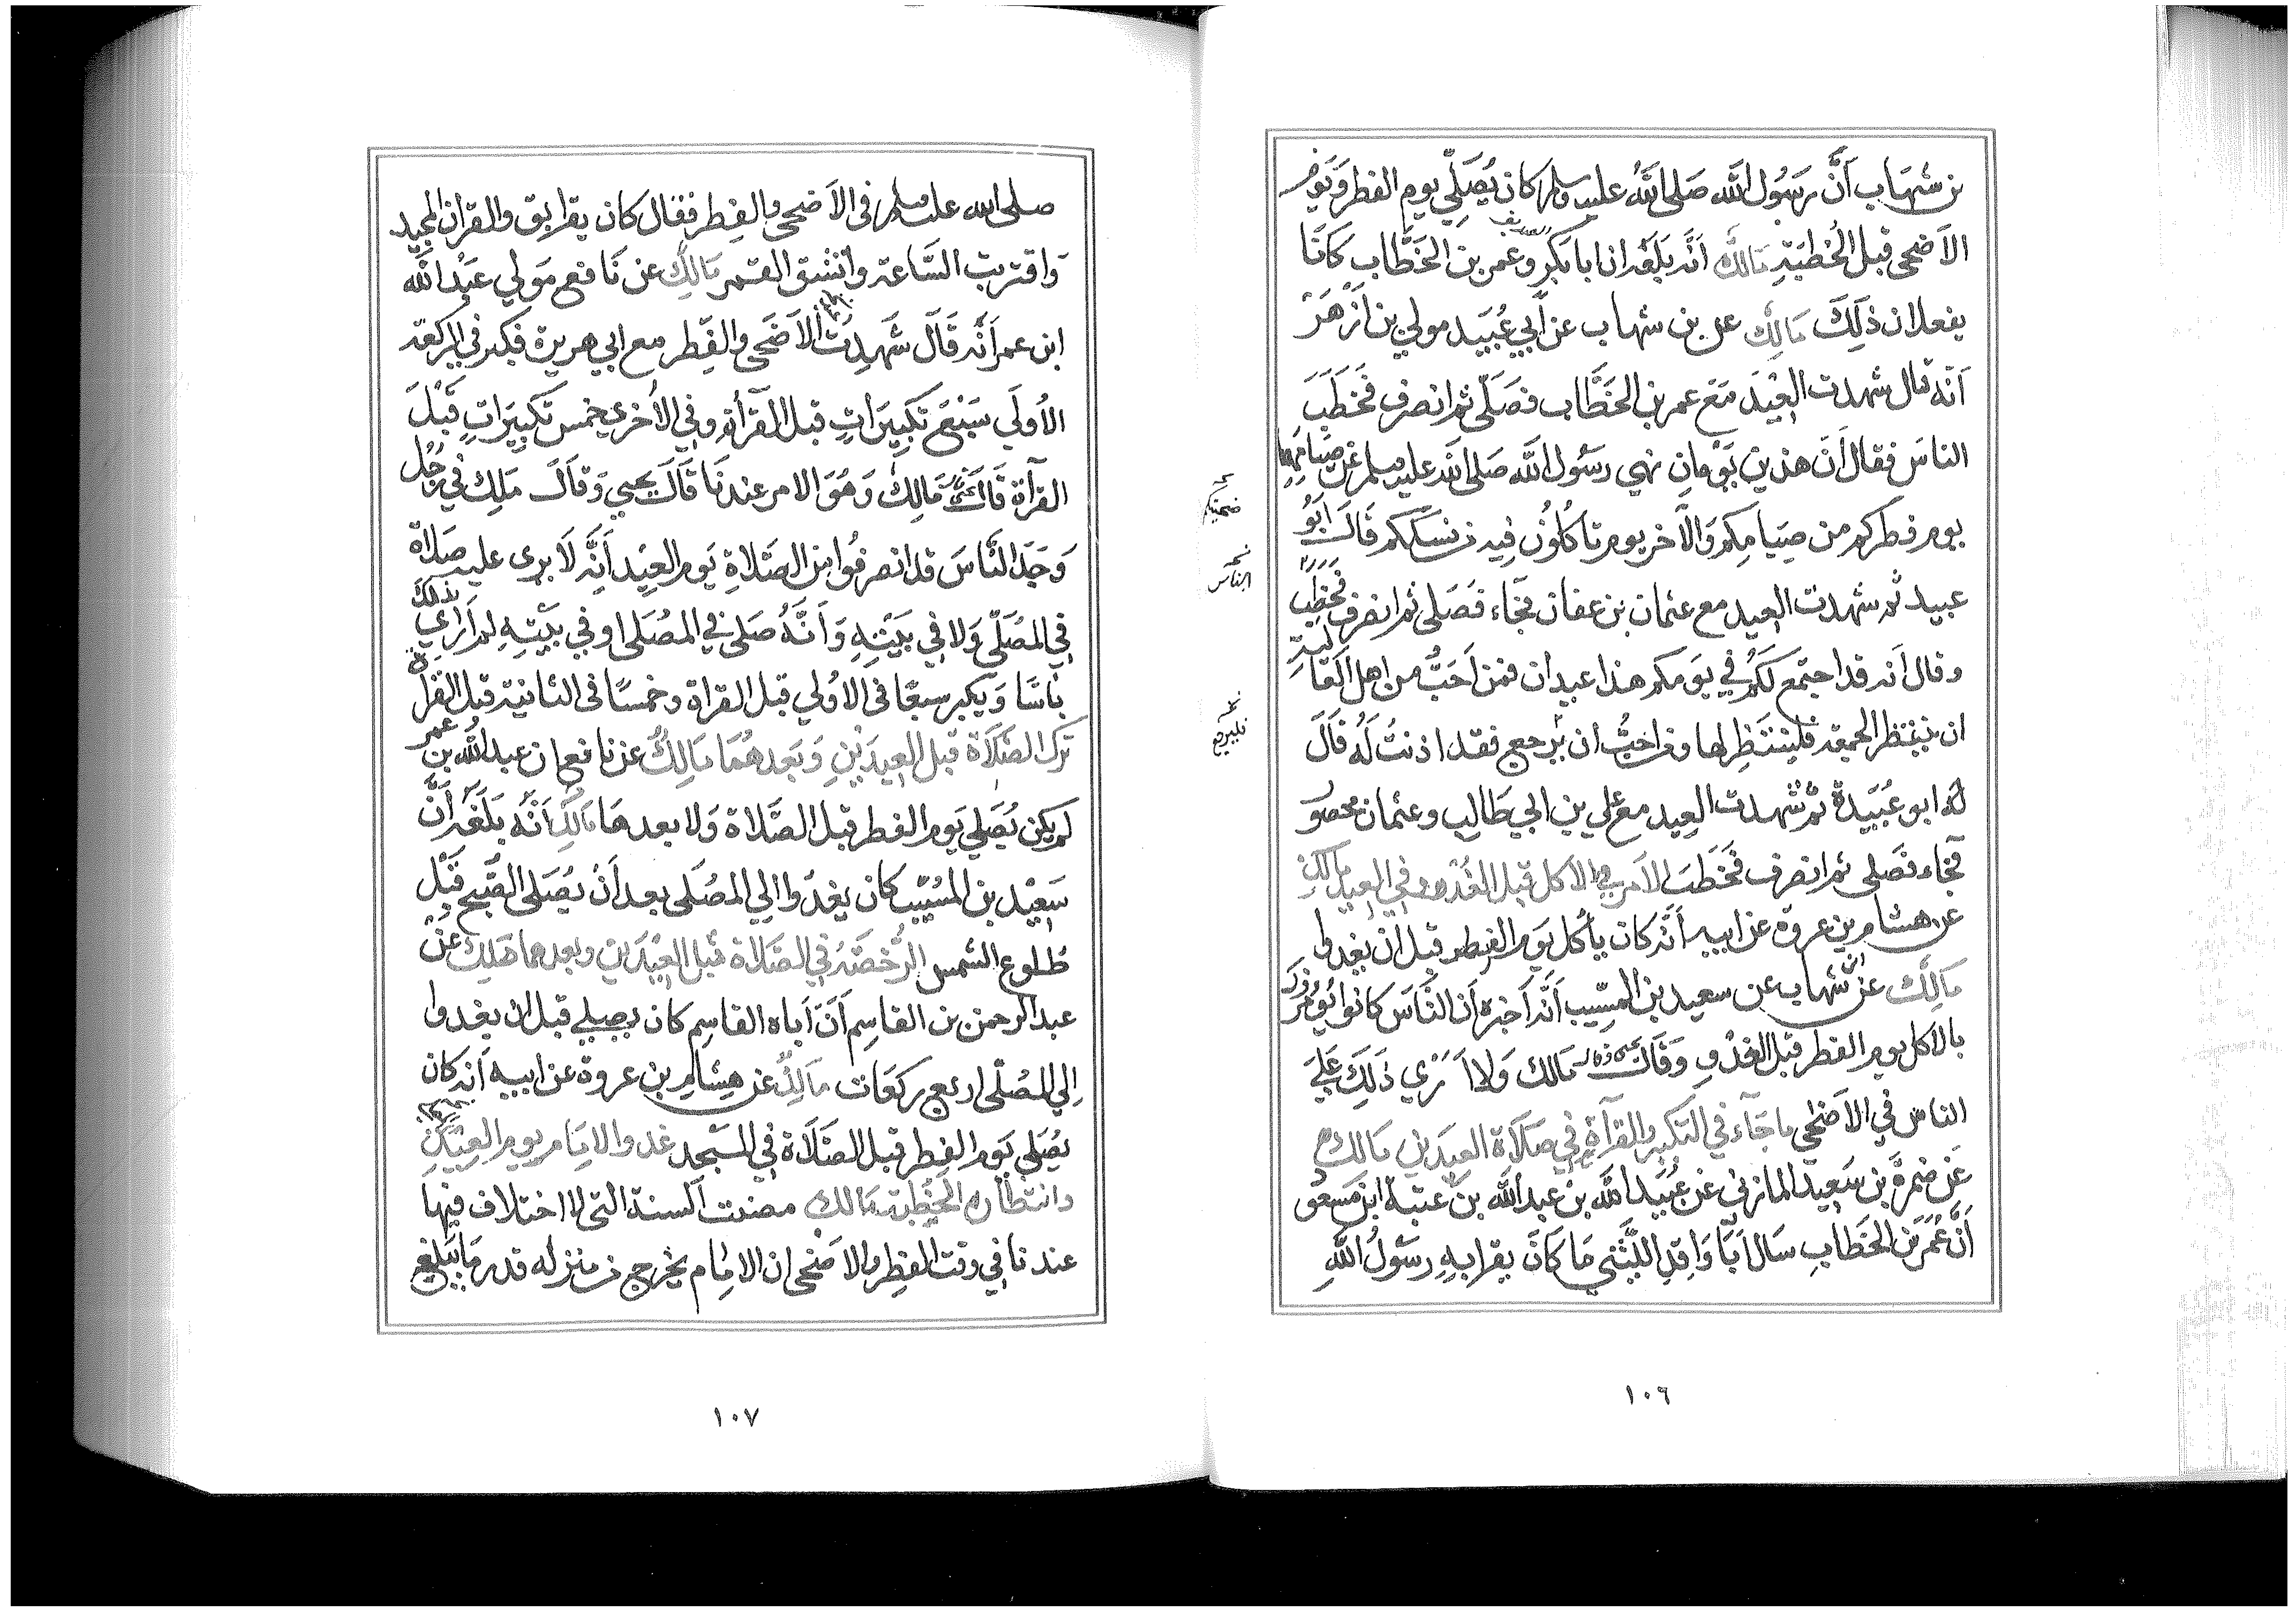 بن شهاب أنّ رسول الله صلى الله عليه وسلم كان يُصلّي يوم الفطر ويوم
الاضحى قبل الخُطبة مالك أنه بلغه ان ابا بكر وعمر بن الخطاب كانا
يفعلان ذلك مالك عن بن شهاب عن أبي عُبيد مولي بن أزهر
أنه قال شهدت العيد مع عمر بن الخطاب فصلّى ثم انصرف فخطب
الناس فقال أن هذين يومان نهي رسول الله صلى الله عليه وسلم عن صيامهما
يوم فطركم من صيامكم والآخر يوم تاكلون فيه من نسككم قال أبو
عبيد ثم شهدت العيد مع عثمان بن عفان فجاء فصلى ثم انصرف فخطب
وقال أنه قد اجتمع لكم في يومكم هذا عيدان فمن أحبّ من اهل العالية
ان ينتظر الجمعة فلينتظرها ومن احبّ ان يرجع فقد اذنت له قال
له ابو عُبيدة ثم شهدت العيد مع علي بن ابي طالب وعثمان محصور
فجاء فصلى ثم انصرف فخطب الامر بالاكل قبل الغدو في العيد مالك
عن هشام بن عروة عن ابيه أنّه كان يأكل يوم الفطر قبل ان يغدوا
مالك عن ابن شهاب عن سعيد بن المسيّب أنّه أخبره أن النّاس كانوا يؤمرون
بالاكل يوم الفطر قبل الغدو وقال مالك ولا أرى ذلك علي
الناس في الاضحى ما جاء في التكبير والقرآة في صلاة العيدين مالك
عن ضمرة بن سعيد المازني عن عبيد الله بن عبد الله بن عتبة ابن مسعو
أنّ عُمر بن الخطاب سال أبا واقد اللّيثي ما كان يقرا به رسول الله
ضحيتكم
الناس
١٠٦
صلى الله عليه وسلم في الأضحى والفطر فقال كان يقرا بق والقران المجيد
واقتربت السّاعة وانشق القمر مالك عن نافع مولي عبد الله
ابن عمر أنّه قال شهدت الأضحى والفطر مع ابي هريرة فكبر في الركعة
الأولي سبع تكبيرات قبل القرأة وفي الأخرى خمس تكبيرات قبل
القرآة قال مالك وهو الامر عندنا قال يحيي وقال ملك في رجل
وجد النّاس قد انصرفوا من الصّلاة يوم العيد أنّه لا يرى عليه صلاة
في المُصلّى ولا في بيته وأنّه صلى في المصلى او في بيته لم أرَ بذلك
باسًا ويكبر سبعًا في الأولي قبل القراة وخمسًا في الثانية قبل القراة
ترك الصّلاة قبل العيدين وبعدهما مالك عن نافع ان عبد الله بن عمر
لم يكن يُصلي يوم الفطر قبل الصّلاة ولا بعدها مالك أنّه بلغه أنّ
سعيد بن المسيّب كان يغدوا الي المصلى بعد أن يُصلى الصّبح قبل
طلوع الشمس الرّخصة في الصلاة قبل العيدين وبعدهما ملك عن
عبد الرحمن بن القاسم أنّ أباه القاسم كان يصلي قبل ان يغدوا
إلي المصلّى اربع ركعات مالك عن هشام بن عروة عن ابيه أنه كان
يُصلي يوم الفطر قبل الصّلاة في المسجد غدو الامام يوم العيدين
وانتظاره الخُطبة مالك مضت السنة التي لا اختلاف فيها
عندنا في وقت الفطر والاضحى ان الامام يخرج من منزله قدر ما يبلغ
١٠٧